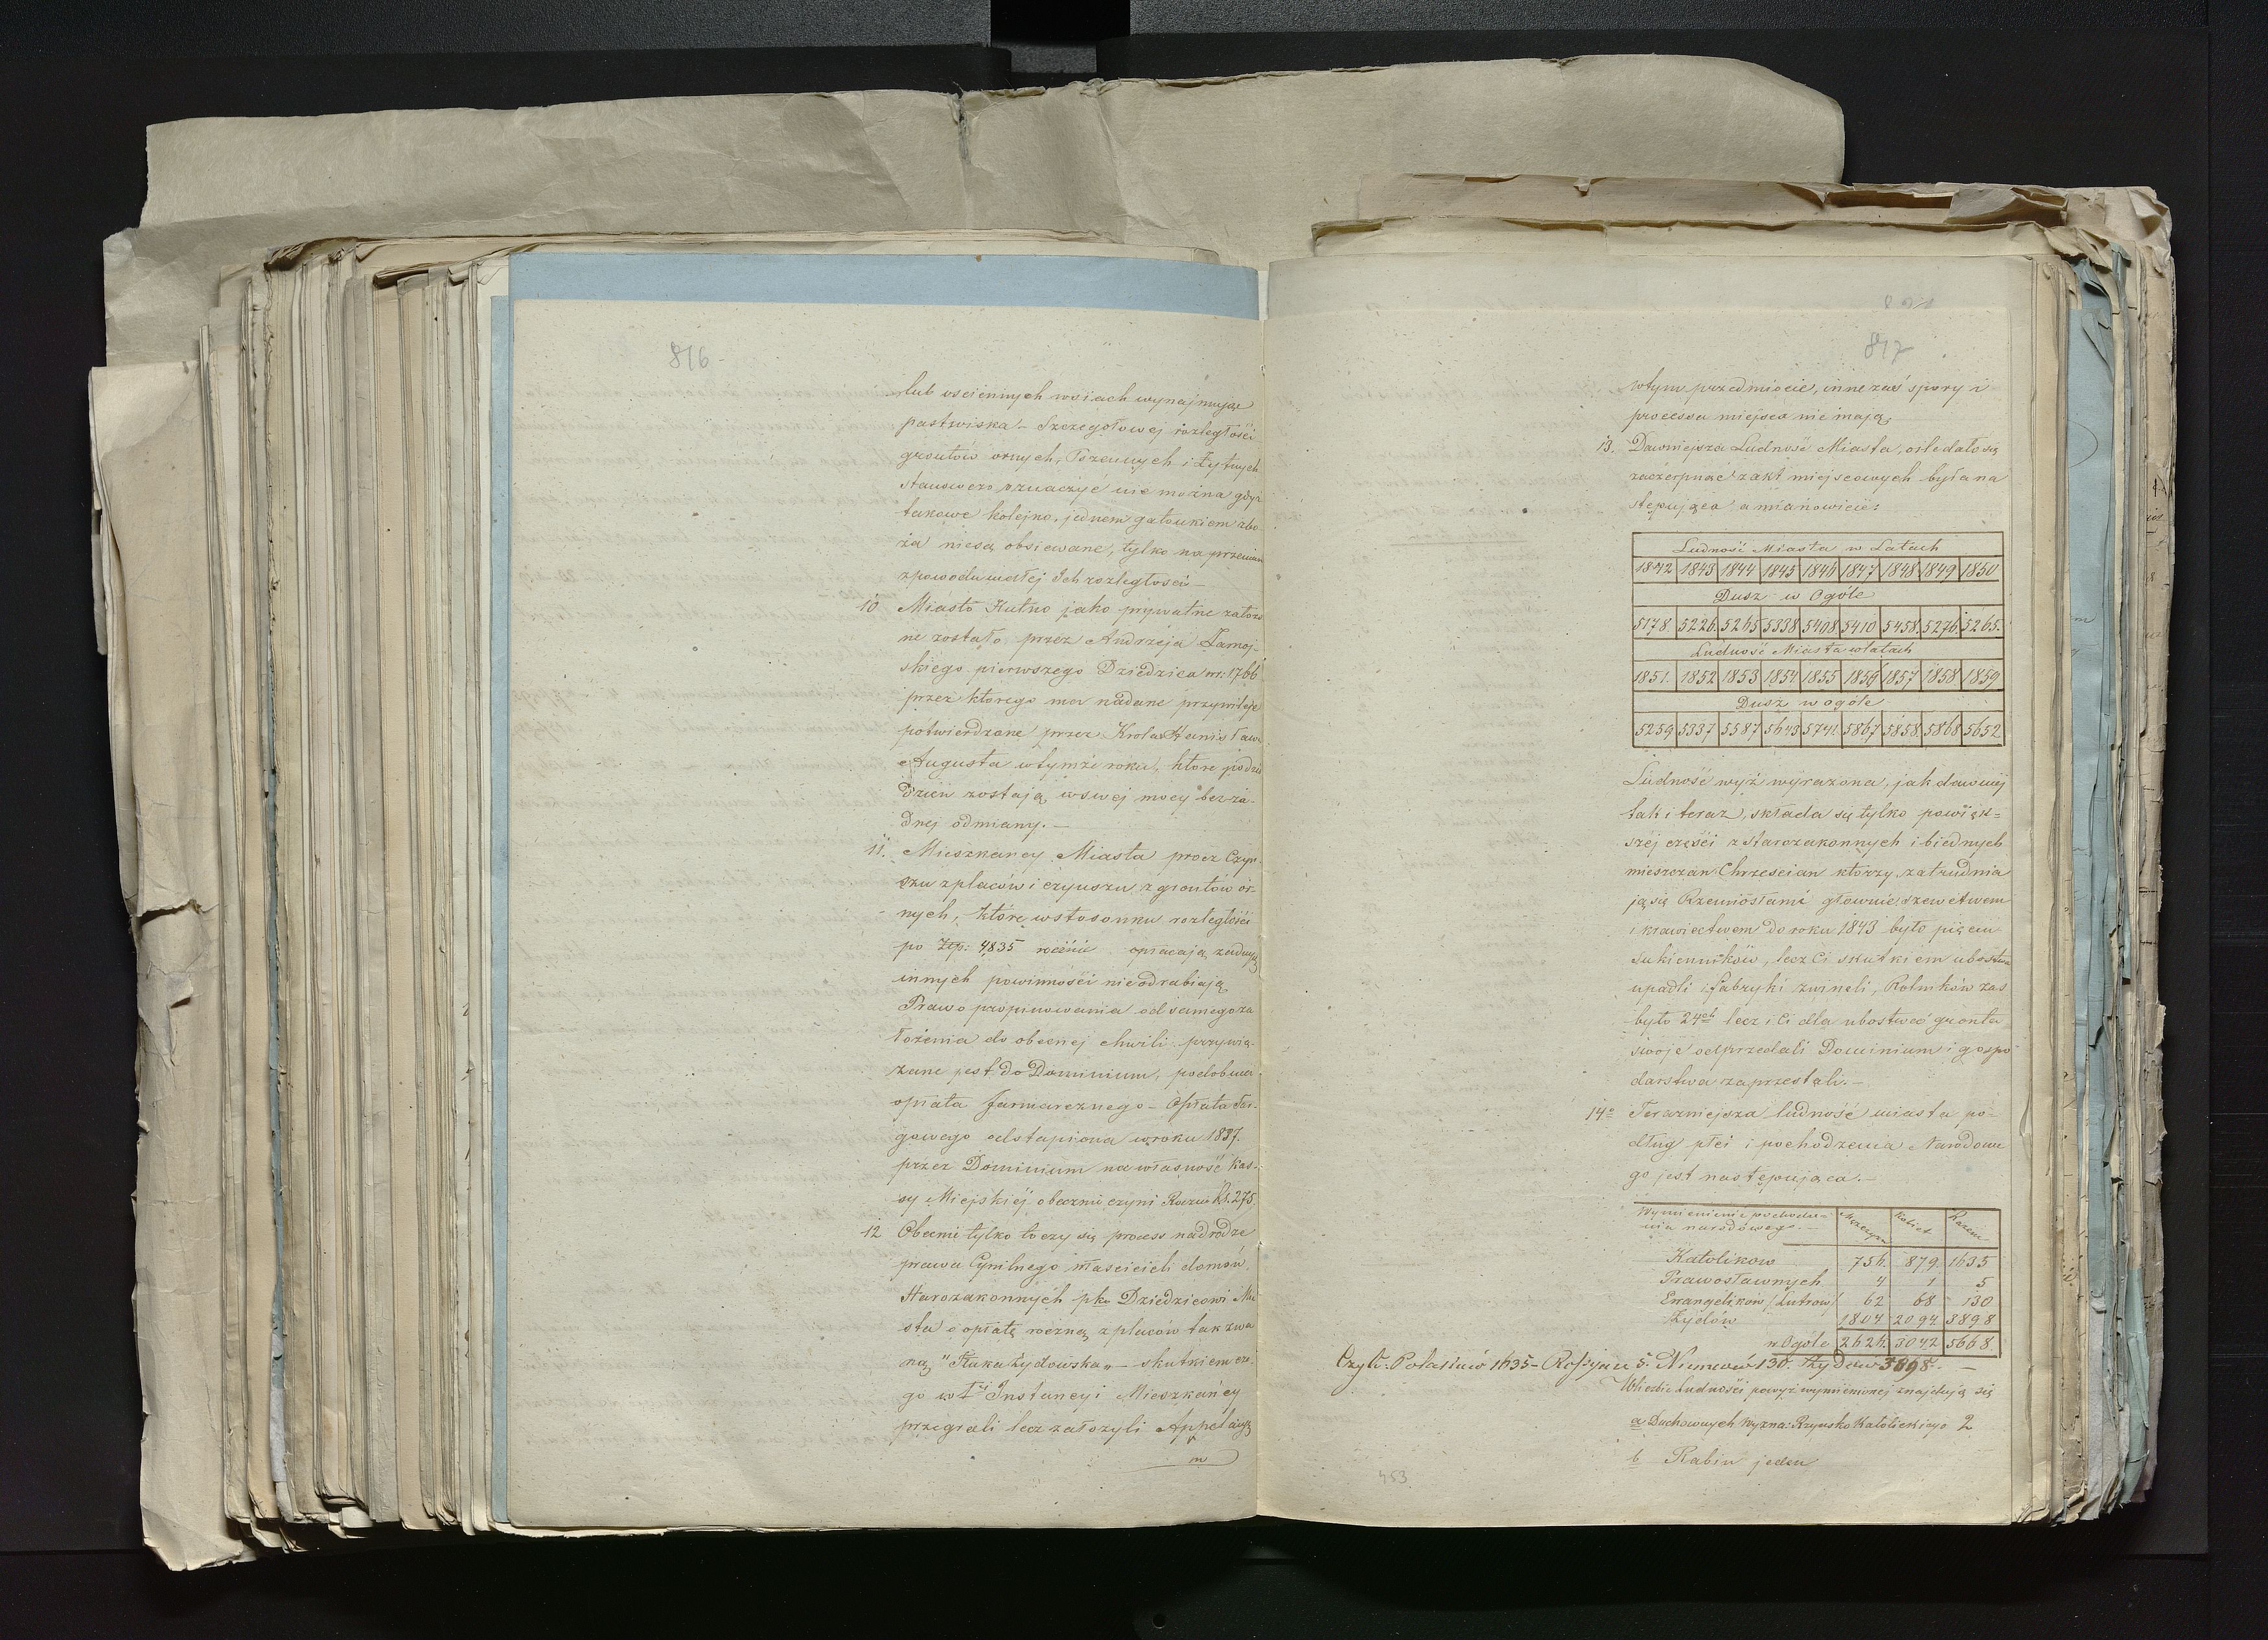 816
lub ościennych wsiach wynajmując
pastwiska – Szczegołowej rozległości
gruntów ornych, Pszennych i Żytnych
stanowczo oznaczyć nie można gdyż
takowe kolejno, jednem gatunkiem zbo-
ża niesą obsiewane, tylko na przemian
zpowodu małej Ich rozległości –
10 Miasto Kutno jako prywatne założo
ne zostało przez Andrzeja Zamoj-
skiego pierwszego Dziedzica w r: 1766
przez ktorego ma nadane przywileje
potwierdzone przez Krola Stanisława
Augusta wtymże roku, ktore podziś
dzień zostają wswej mocy bez ża-
dnej odmiany. –
11. Mieszkańcy Miasta procz Czyn-
szu zplaców i czynszu z gruntów or
nych, które wstosunku rozległości
po Złp: 4835 rocznie opłacają żadnych
innych powinności nieodrabiają
Prawo propinowania od samego za
łożenia do obecnej chwili przywią-
zane jest do Dominium, podobnie
opłata Jarmarcznego – Opłata Tar-
gowego odstąpiona wroku 1837.
przez Dominium na własność Kas-
sy Miejskiéj obecnie czyni Rocznie Rs. 275
12 Obecnie tylko toczy się process nadrodze
prawa Cywilnego właścicieli domów
Starozakonnych pko Dziedzicowi Mia
sta o opłatę roczną z placów tak zwa
ną "Kuka Żydowska„ – skutkiem cze
go w I Instancyi Mieszkańcy
przegrali lecz założyli Appelacyą
w
817
wtym przedmiocie, inne zaś spory i
processa miejsca nie mają,
13. Dawniejsza Ludność Miasta, o ile dało się
zaczerpnąć z akt miejscowych była na
stępująca a mianowicie:
Ludność Miasta w Latach
1842 1843 1844 1845 1846 1847 1848 1849 1850
Dusz w Ogóle
5178 5226 5265 5338 5408 5410 5458 5276 5265.
Ludność Miasta wlatach
1851. 1852 1853 1854 1855 1856 1857 1858 1859
Dusz wogóle
5259 5337 5587 5643 5741 5867 5858 5868 5652
Ludność wyż wyrażona, jak dawniej
tak i teraz, składa się tylko powięk=
széj części z Starozakonnych i biednych
mieszczan Chrześcian ktorzy zatrudnia
ją się Rzemiosłami głównie szewctwem
i krawiectwem do roku 1843 było pięciu
sukienników, lecz Ci skutkiem ubostwa
upadli i fabryki zwineli, Rolników zaś
było 24ch lecz i Ci dla ubostwa gronta
swoje odprzedali Dominium i gospo
darstwa zaprzestali. –
14o Terazniejsza ludność miasta po=
dług płci i pochodzenia Narodowe
go jest następująca. –
Wymienienie pochodze=
nia narodowego. – Mężczyzn Kobiet Razem
Katolikow 756. 879. 1635
Prawosławnych 4 1 5
Ewangelikow /Lutrow/ 62 68 130
Żydów 1804 2094 3898
w Ogóle 2626. 3042 5668
Czyli: Polakiów 1635 – Rossyan 5. Niemców 130. Żydów 3898. –
Wliczbie Ludności powyż wymienionej znajdują się
a Duchownych wyzna: Rzymsko Katolickiego 2
b Rabin jeden
453